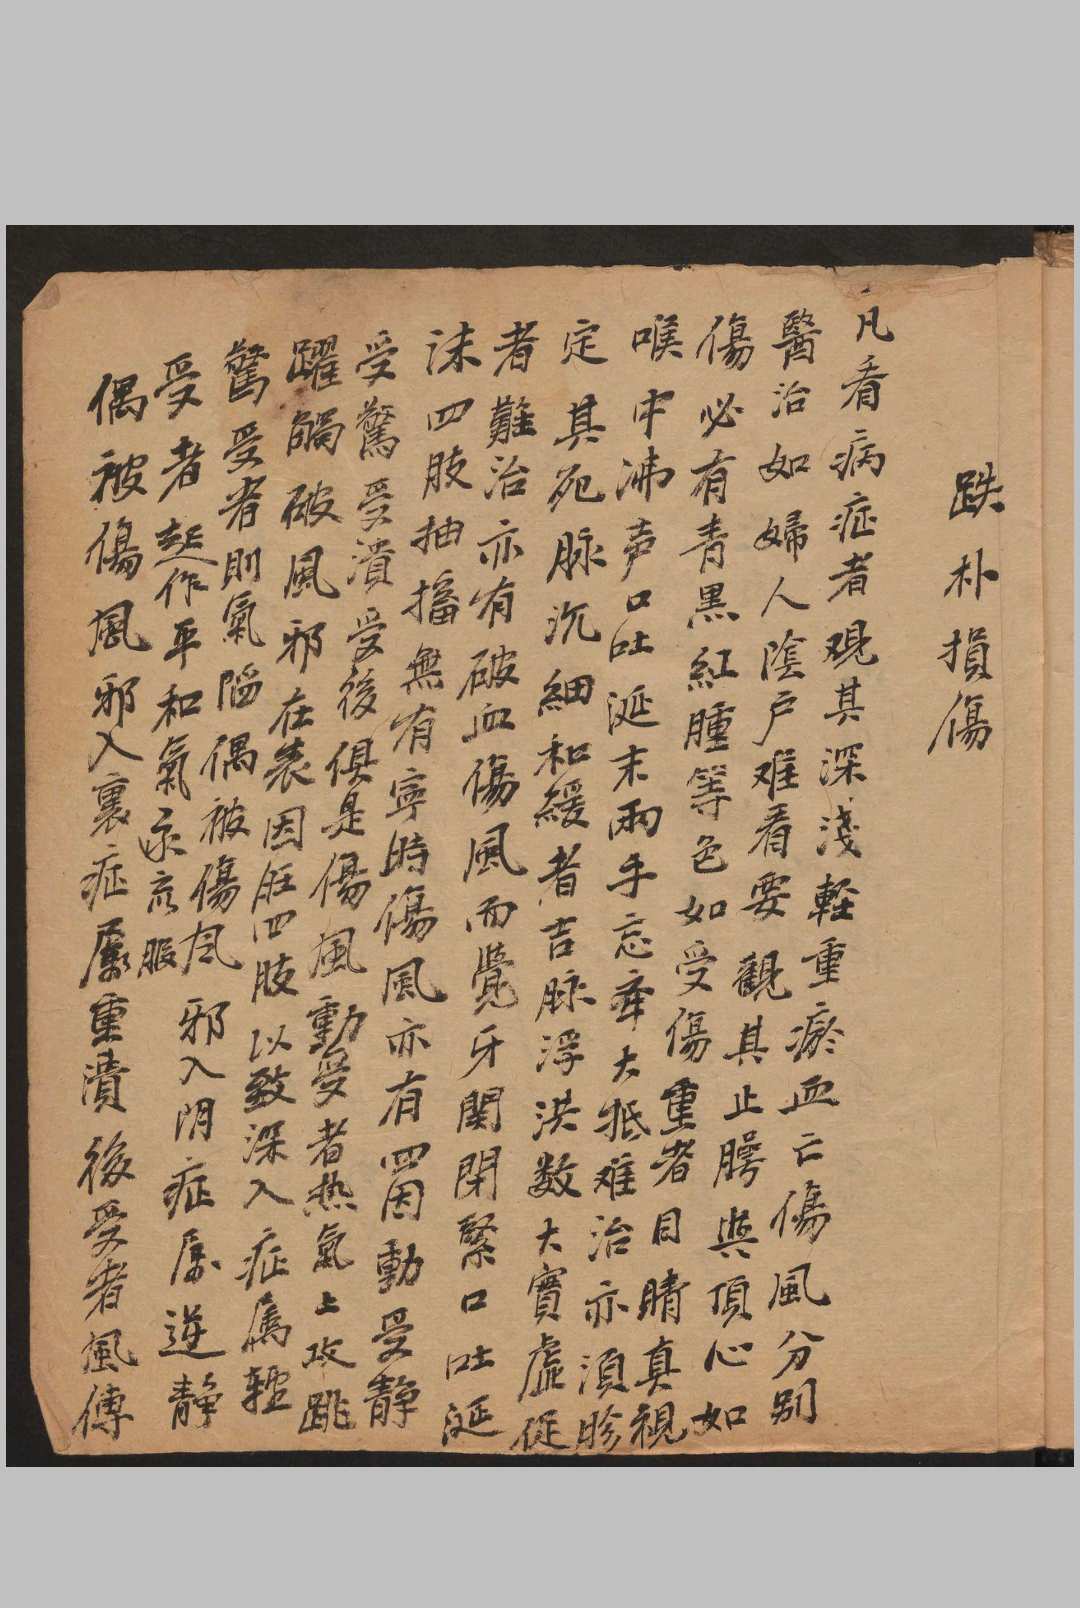 跌朴損傷
凡看病症者观其深淺輕重瘀血亡傷風分别
醫治如婦人陰户难看要觀其止腭與頂心如
傷必有青黑紅腫等色如受傷重者目睛真視
喉中沸声口吐涎末兩手忘牽大抵难治亦須胗
定其死脉沉細和緩者吉脉浮洪数大實虛促
者難治亦有破血傷風而覺牙関閉緊口吐涎
沫四肢抽搐無有寧時傷風亦有四因動受静
受驚受潰受後俱是傷風動受者热氣上攻跳
躍觸破風邪在表因在四肢以致深入症属輕
驚受者則氣陷偶被傷风邪入阴症属逆静
受者起作平和氣永亥服
偶被傷風邪入裏症屬重潰後受者風傳